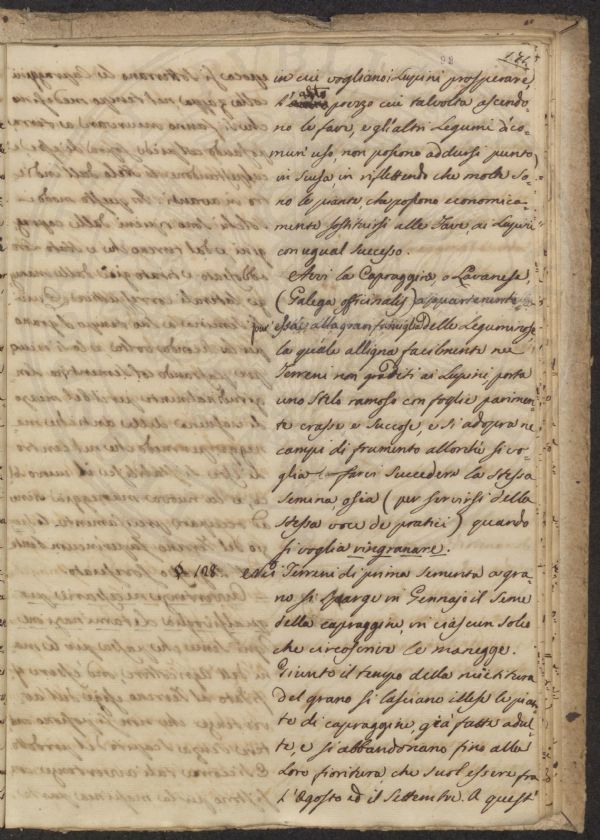 98 174
in cui vogliano i Lupini prosperare.
L'alto prezzo cui talvolta ascendo-
no le fave, e gli altri Legumi di co-
mun' uso, non possono addursi punto
in scusa, in riflettendo che molte so-
no le piante, che possono economica-
mente sostituirsi alle Fave, ai Lupini
con ugual successo.
Avvi la Capraggine, o Lavanese,
(Galega officinalis) appartenente
pur' essa alla gran famiglia delle Leguminose,
la quale alligna facilmente ne'
Terreni non graditi ai Lupini, porta
uno stelo ramoso con foglie parimen-
te crasse e succose, e si adopra ne'
campi di frumento allorchè si vo-
glia farci succedere la stessa
semina, ossia (per servirsi della
stessa voce de' pratici) quando
si voglia ringranare.
§ 128. Nei Terreni di prima sementa a gra-
no si sparge in Gennajo il seme
della capraggine, in ciascun solco
che circoscrive le manegge.
Giunto il tempo della mietitura
del grano si lasciano illese le pian-
te di capraggine, già fatte adul-
te, e si abbandonano fino alla
loro fioritura, che suol essere fra
l'Agosto ed il Settembre. A quest'